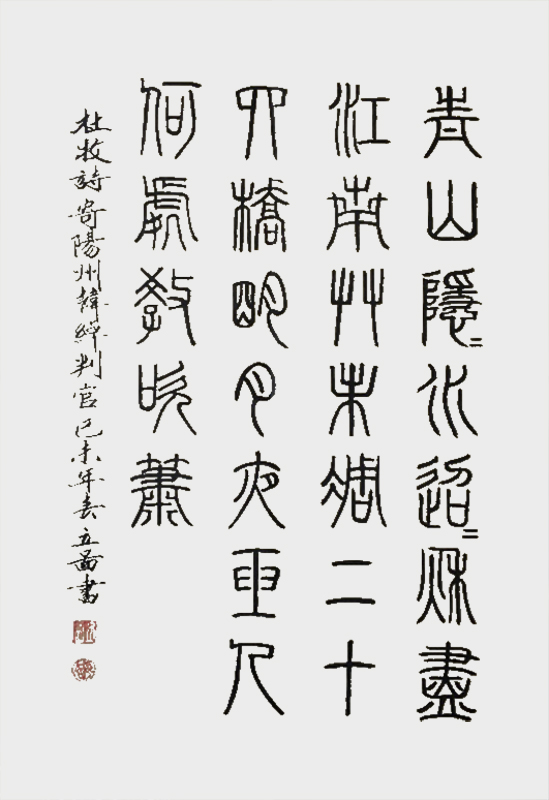 青山隱=水迢=秋盡
江南艸未凋二十
四橋明月夜玉人
何處教吹簫
杜牧詩寄陽州韓綽判官己未年春立書